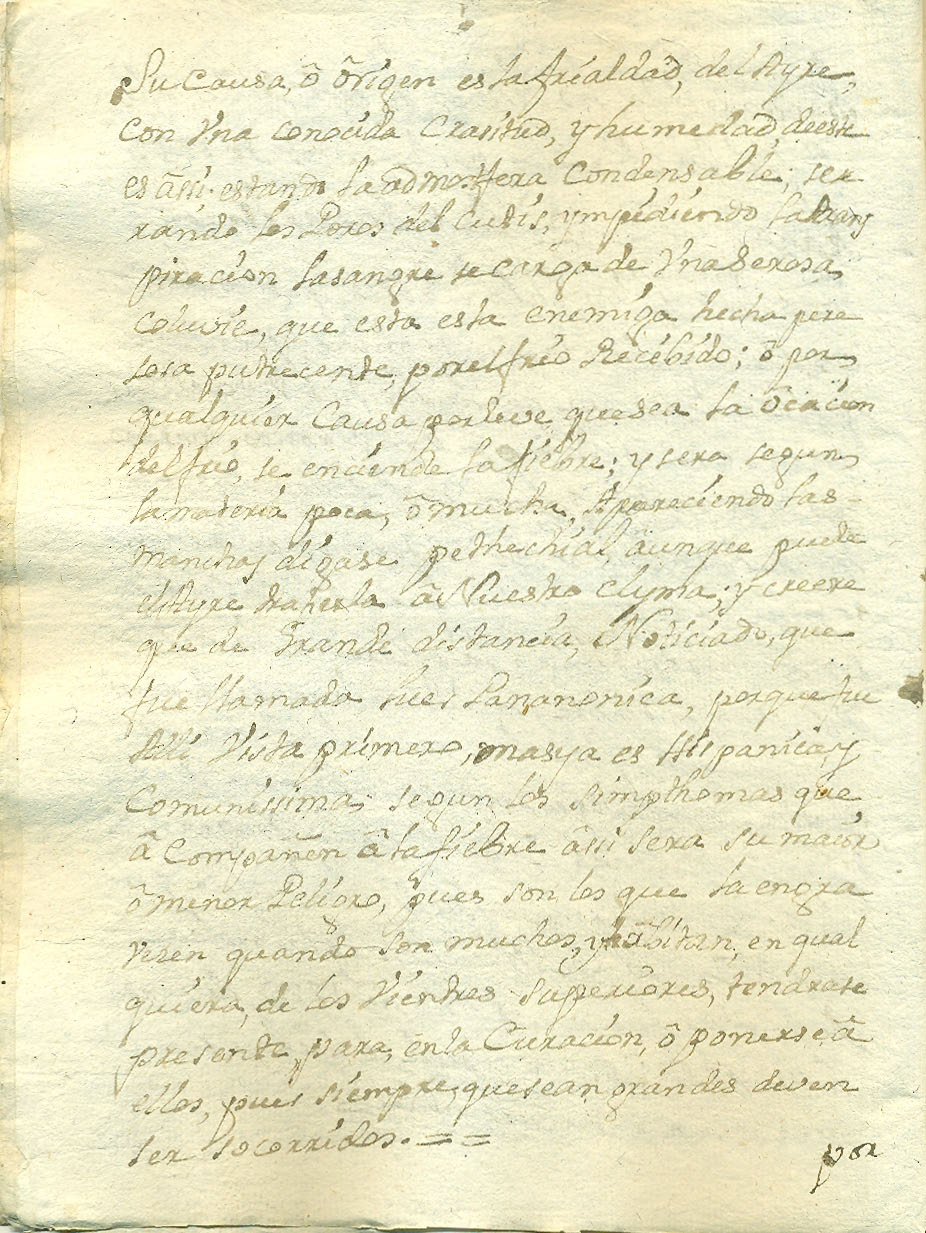 Su causa, ô ôrigen es la frialdad, del Ayre,
con Vna conocida Crasitud, y humedad, de este
es âssi; estando la admosfera Condensable; ser
rando los Poros del Cutis, ympidiendo la trans
piracion la sangre se carga de Vna Serosa
coluvie, que esta es la enemiga hecha pere
sosa putrecente por el frio Recebido; ô por
qualquior Causa por leve que sea la ôcacion
del frio, se enciende la fiebre; y sera segun,
la materia poca, ômucha, Apareciendo las
Manchas digase pethechial, aunque puede
el Ayre traherla â Nuestro Clyma; y creere
que de Grande distancia, Noticiado, que
fue llamada lues Pananonica, porque fu
Alli Vista primero, mas ya es Hispanica, y
Comunissima; segun los Simpthomas que
â Compañen â la fiebre âssi sera su maior
ô menor Peligro, pues son los que la engra
vesen quando son muchos, y habitan, en qual
quiera, de los Vientres Superiores, tendrase
presente, para, en la Curacion, ô ponerse â
ellos, pues siempre, que sean grandes deven
ser socorridos. = =
por